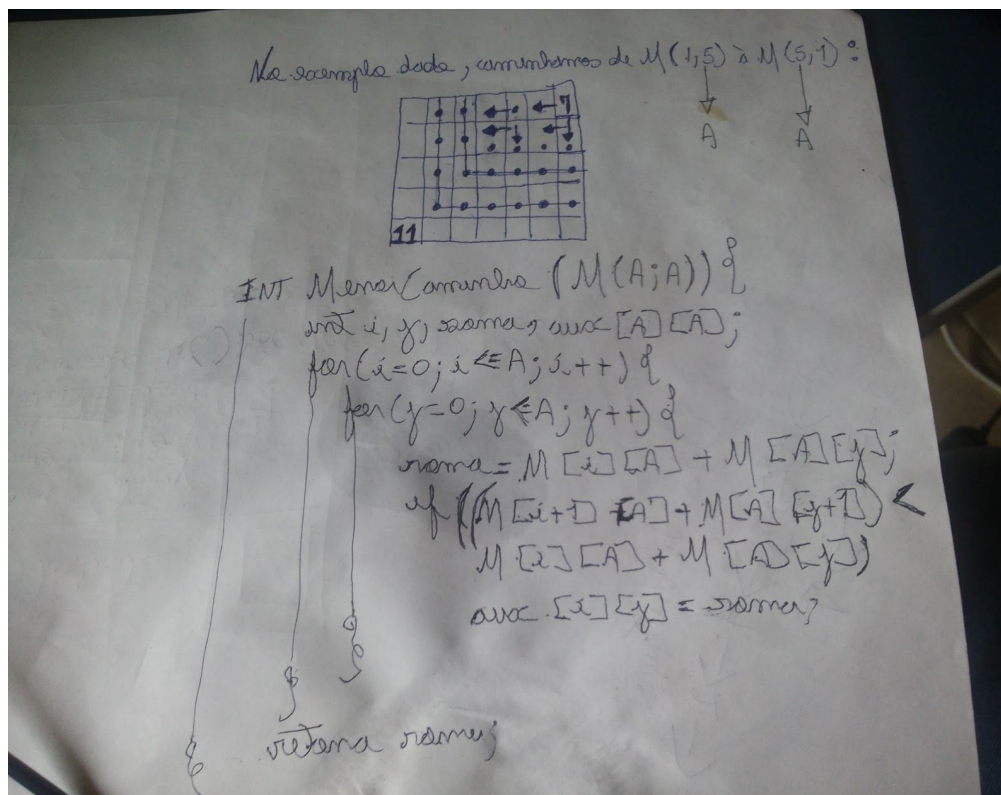 No exemplo dado, caminhamos de M(1,5) à M(5,1):
A A
7
11
INT MenorCaminho (M(A;A)) {
int i, y, soma, aux [A][A];
for(i=0; i<=A; i++) {
for(y=0; y<=A; y++) {
soma = M[i][A] + M[A][y];
if ((M[i+1] [A] + M[A] [y+1]) <
M[i][A] + M[A][y])
aux [i][y] = soma;
}
}
retorna soma;
}